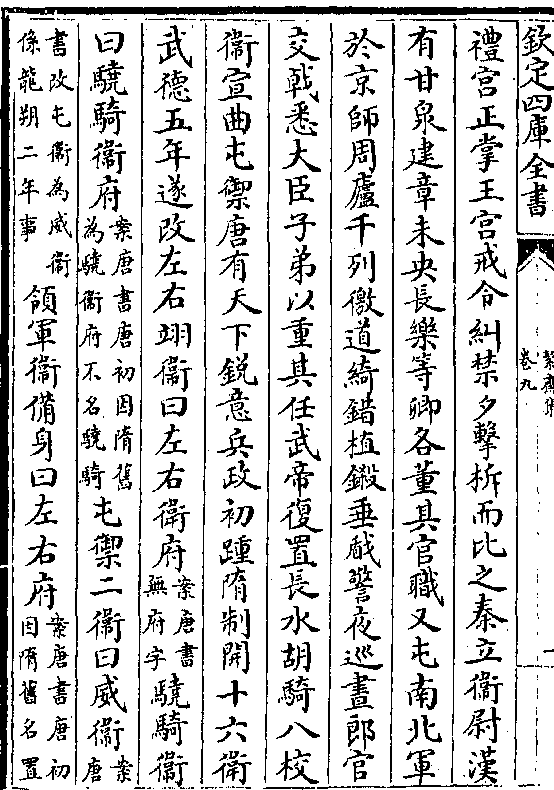 欽定四庫全書
卷九
禮宮正掌王宮戒令糾禁夕擊柝而比之秦立衛尉漢
有甘泉建章未央長樂等卿各董其官職又屯南北軍
於京師周廬千列徼道綺錯植鎩垂瞂警夜巡晝郎官
交戟悉大臣子弟以重其任武帝復置長水胡騎八校
衛宣曲屯禦唐有天下銳意兵政初踵隋制開十六衛
武德五年遂改左右翊衞曰左右衛府案唐書無府字驍騎衛
曰驍騎衛府案唐書唐初因隋舊為驍衛府不名驍騎屯禦二衞曰威衛案唐
書改屯衛為威衛係龍朔二年事領軍衞備身曰左右府案唐書唐初因隋舊名置